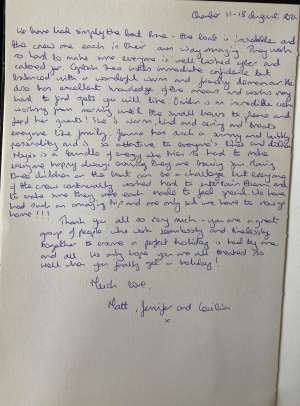 Charter 11-18 August 2021
We have had simply the best time - the boat is incredible and
the crew are each in their own way amazing. They work
so hard to make sure everyone is well looked after and
catered for. Captain has immediate confidence but
balanced with a wonderful warm and friendly demeanour. He
also has excellent knowledge of the areas and works very
hard to find spots you will like. is an incredible cook
working from morning until the small hours to please and
feed her guests! She is warm, kind and caring and treats
everyone like family. has such a sunny and bubbly
personality and is so attentive to everyone's likes and dislikes.
is a bundle of energy who tries so hard to make
everyone happy always ensuring they are having fun. Having
three children on the boat can be a challenge but everyone
of the crew continually worked hard to entertain them and
to make sure they were made to feel special. We have
had such an amazing trip and are only sad we have to
home!!!
Thank you all so very much - you are a great
group of people who work seamlessly and tirelessly
together to ensure a perfect holiday is had by me
and all. We only hope you are all treated so
well when you finally get a holiday!
Much love,
Matt, Jennifer and
x